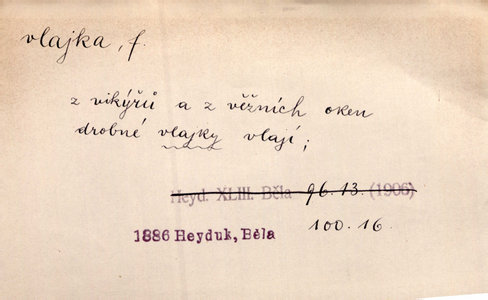 vlajka, f.
z vikýřů a z věžních oken
drobné vlajky vlají;
Heyd. XLIII. Běla 96. 13. (1906)
100. 16.
1886 Heyduk, Běla